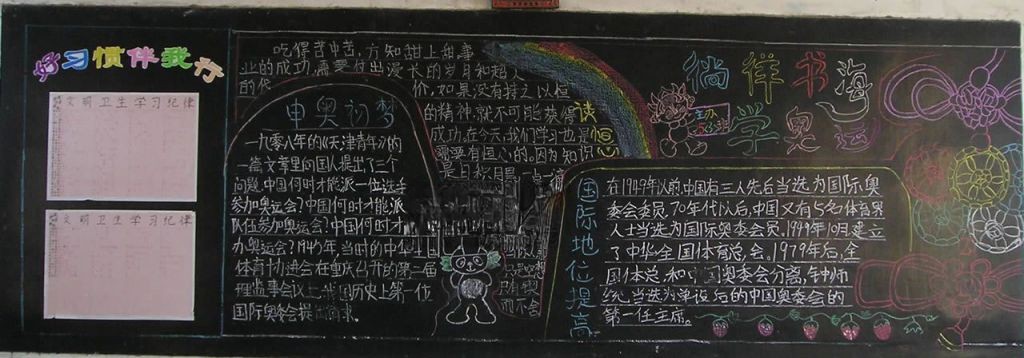 好习惯伴我行
文明卫生学习纪律
文明卫生学习纪律
吃得苦中苦,方知甜上甜,事
业的成功,需要付出漫长的岁月和超人
的代价,如果没有持之以恒
的精神,就不可能获得
成功,在今天,我们学习也是
需要有恒心的。因为知识
是日积月累,一点一滴
读恒心
申奥初梦
一九零八年的《天津青年》的
一篇文章里向国人提出了三个
问题,中国何时才能派一位选手
参加奥运会?中国何时才能派
队伍参加奥运会?中国何时才
办奥运会?1945年,当时的中华全国
体育协进会在重庆召开的第二届
理监事会议上,我国历史上第一位
国际奥委会提
而不舍
徜徉书海
学奥运
主办
国际地位提高
在1949年以前,中国有三人先后当选为国际奥
委会委员,70年代以后,中国又有5名体育界
人士当选为国际奥委会委员。1949年10月建立
了中华全国体育总会。1979年后,全
国体总和中国奥委会分离,钟师
统当选为单设后的中国奥委会的
第一任主席。